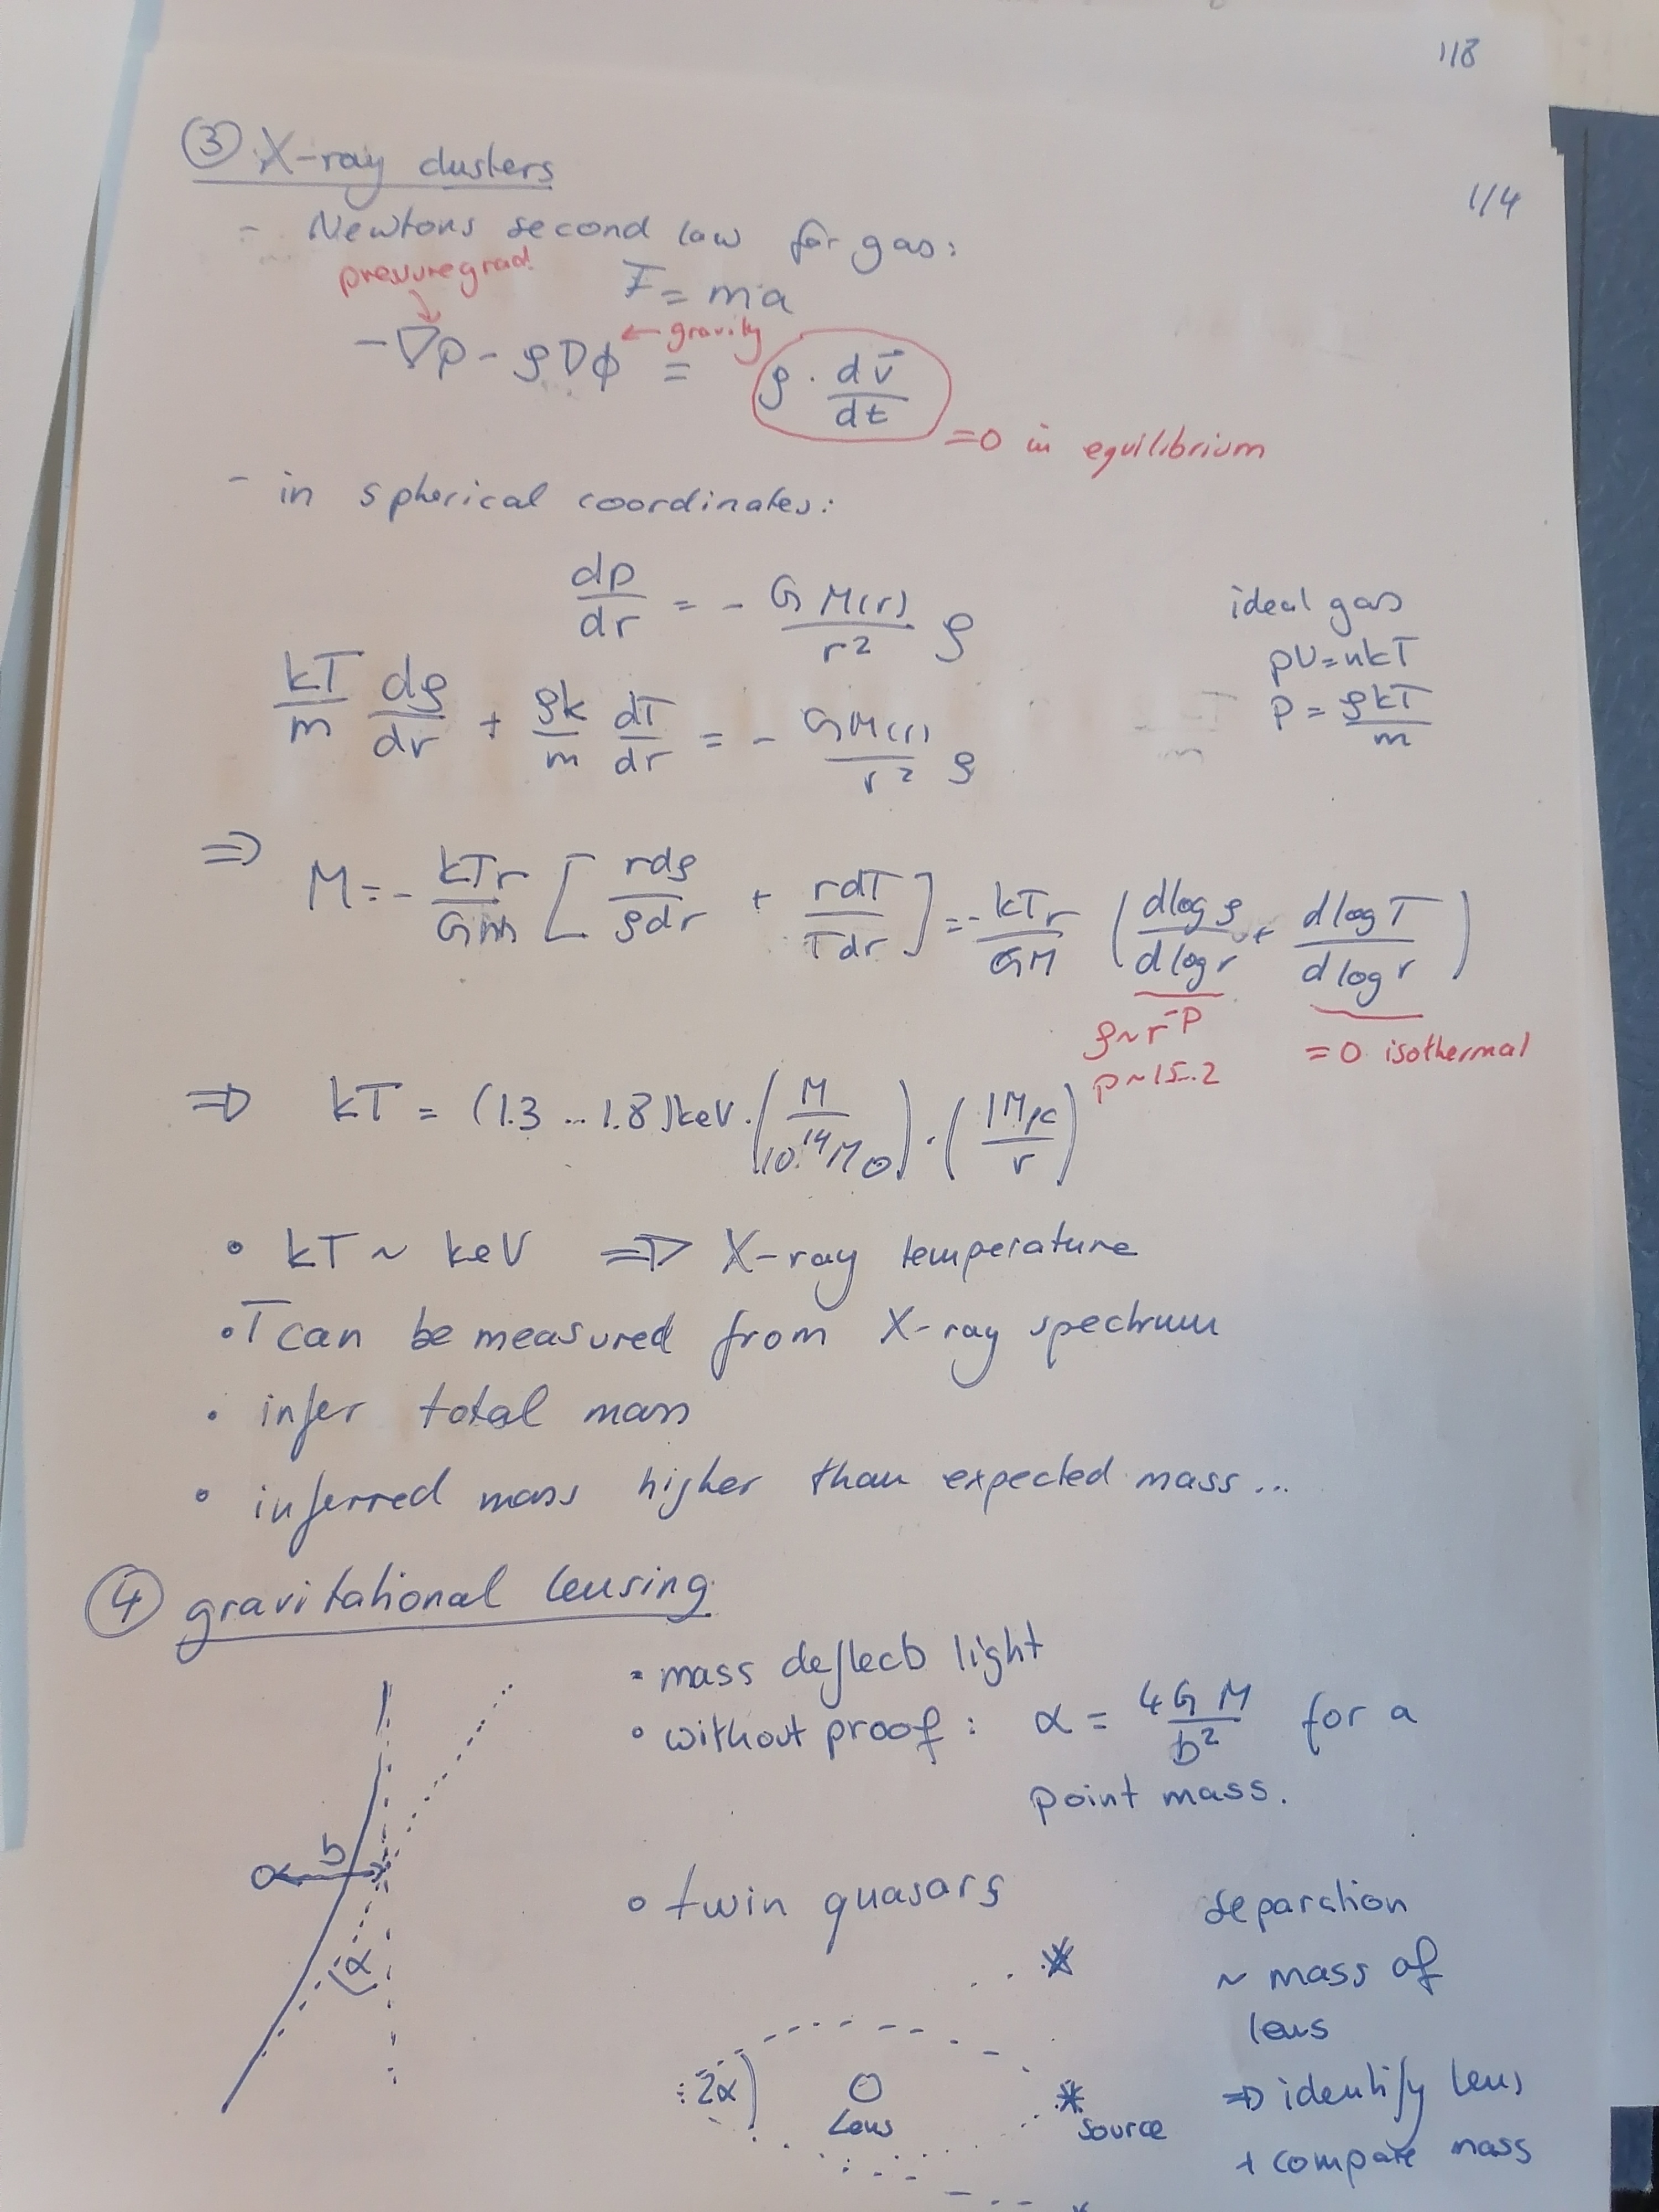 118
③ X-ray clusters
1/4
- Newtons second law for gas:
pressuregrad.
F = ma
← gravity
-∇p - ρ∇ϕ = ρ · dv⃗/dt
=0 in equilibrium
- in spherical coordinates:
dp/dr = - GM(r)/r² ρ
ideal gas
pV=nkT
kT/m dρ/dr + ρk/m dT/dr = - GM(r)/r² ρ
P = ρkT/m
⇒ M = - kTr/Gm [ rdρ/ρdr + rdT/Tdr ] = - kTr/GM ( dlogρ/dlogr + dlogT/dlogr )
ρ~r^-p
p~1.5..2
=0 isothermal
⇒ kT = (1.3 ... 1.8)keV · (M/10^14 M⊙) · (1Mpc/r)
• kT ~ keV ⇒ X-ray temperature
• T can be measured from X-ray spectrum
• infer total mass
• inferred mass higher than expected mass...
④ gravitational lensing
• mass deflects light
• without proof: α = 4GM/b² for a
point mass.
b
α
• twin quasars
2α
Lens
Source
separation
~ mass of
lens
⇒ identify lens
+ compare mass